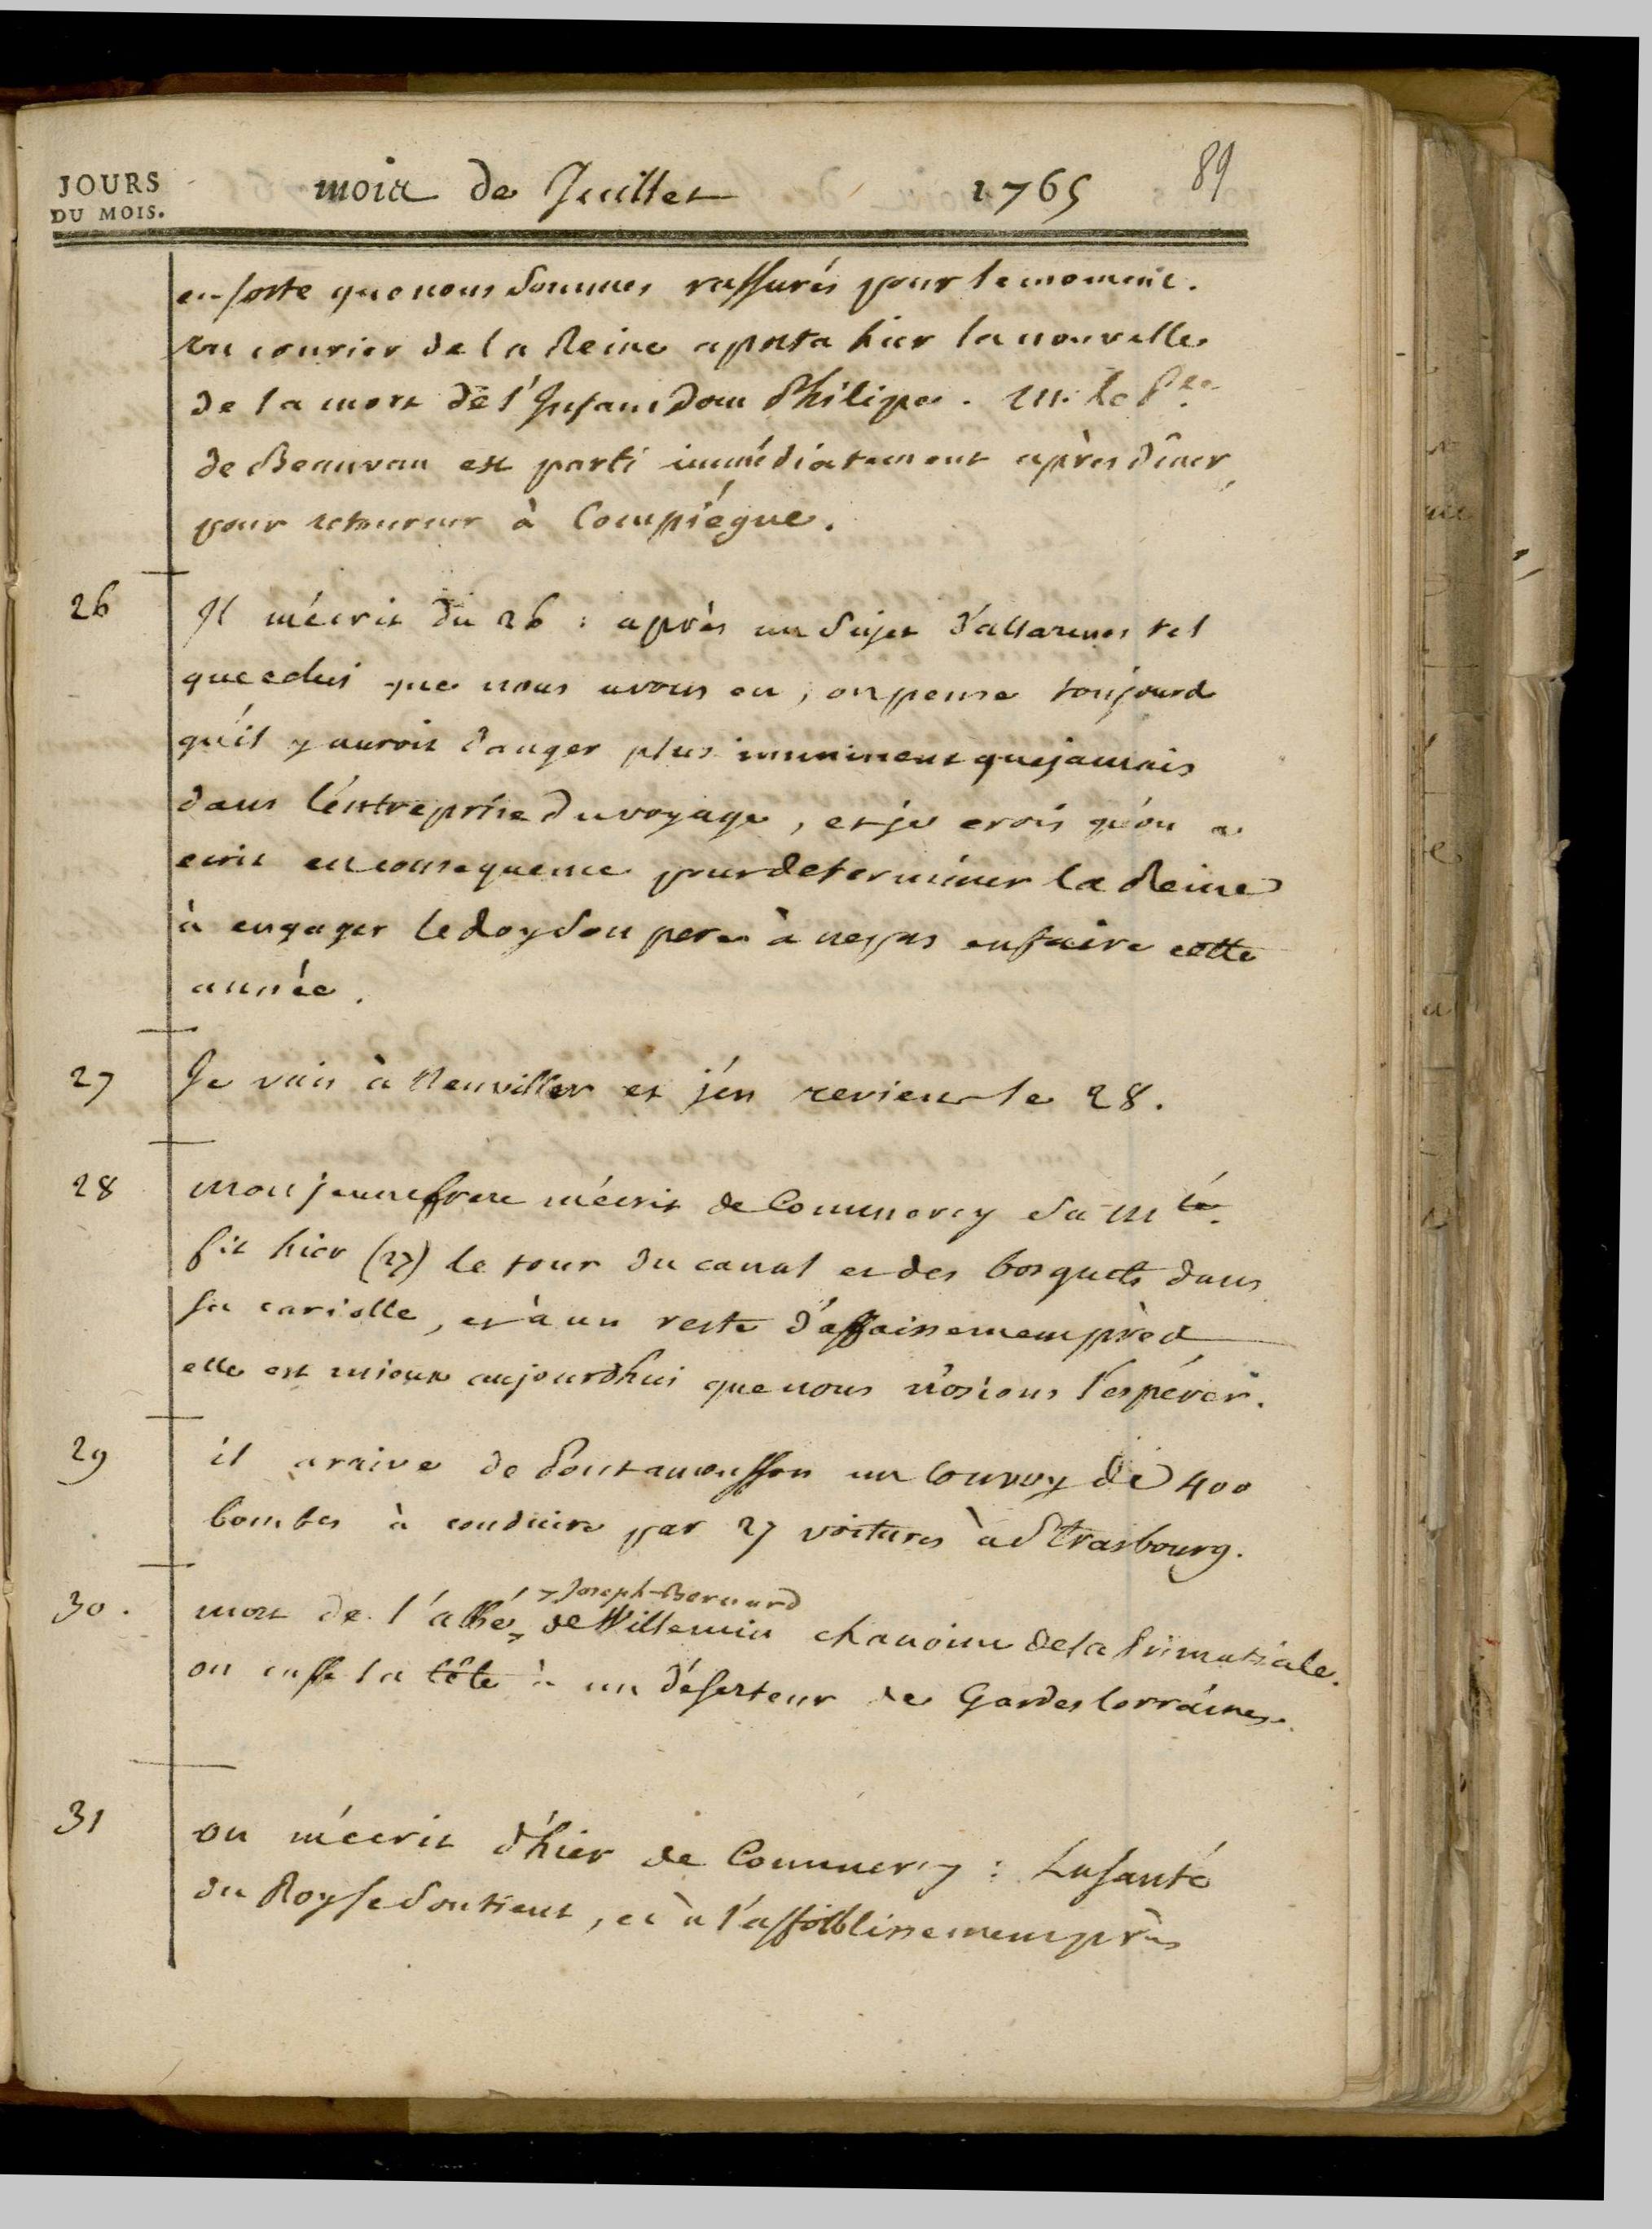 JOURS
DU MOIS.
mois de Juillet 1765 89
en sorte que nous sommes rassurés pour le moment.
un courier de la Reine aporta hier la nouvelle
de la mort de l'Infant Dom Philipe. M. le P.ce
de Beauvau est parti immédiatement après dîner,
pour retourner à Compiégne.
26 Il m'écrit du 26 : après un sujet d'allarmes tel
que celui que nous avons eu, on pense toujours
qu'il y auroit danger plus imminent que jamais
dans l'entreprise du voyage, et je crois qu'on a
ecrit en consequence pour determiner la Reine
à engager le Roy son pere à ne pas en faire cette
année.
27 Je vais à Neuviller et j'en reviens le 28.
28 mon jeune frere m'écrit de Commercy sa M.té
fit hier (27) le tour du canal et des bosquets dans
sa cariolle, et à un reste d'affaissement près
elle est mieux aujourdhui que nous n'osions l'espérer.
29 il arrive de Pontamousson un convoy de 400
bombes à conduire par 27 voitures à Strasbourg.
30. mort de l'abbé Joseph-Bernard de Willemin chanoine de la Primatiale.
on casse la tête à un déserteur de Gardes lorraines.
31 on m'écrit d'hier de Commercy : La santé
du Roy se soutient, et à l'affoiblissement près